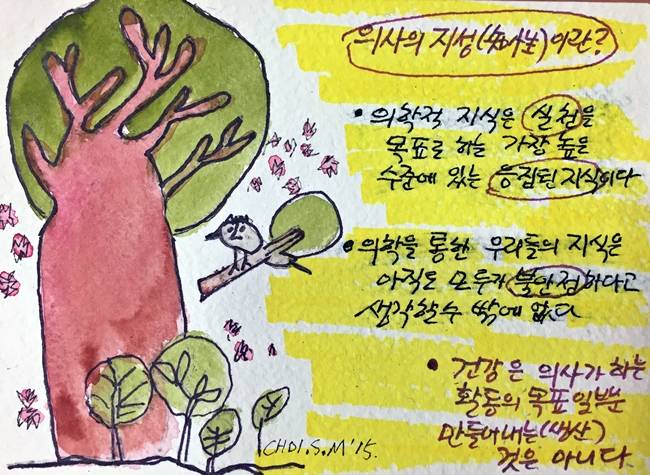 의사의 지성(知性)이란?
• 의학적 지식은 실천을
목표로 하는 가장 높은
수준에 있는 응집된 지식이다
• 의학을 통한 우리들의 지식은
아직도 모두가 불안정하다고
생각할 수 밖에 없다
• 건강은 의사가 하는
활동의 목표 일부분
만들어내는(생산)
것은 아니다.
CHOI.S.M'15.